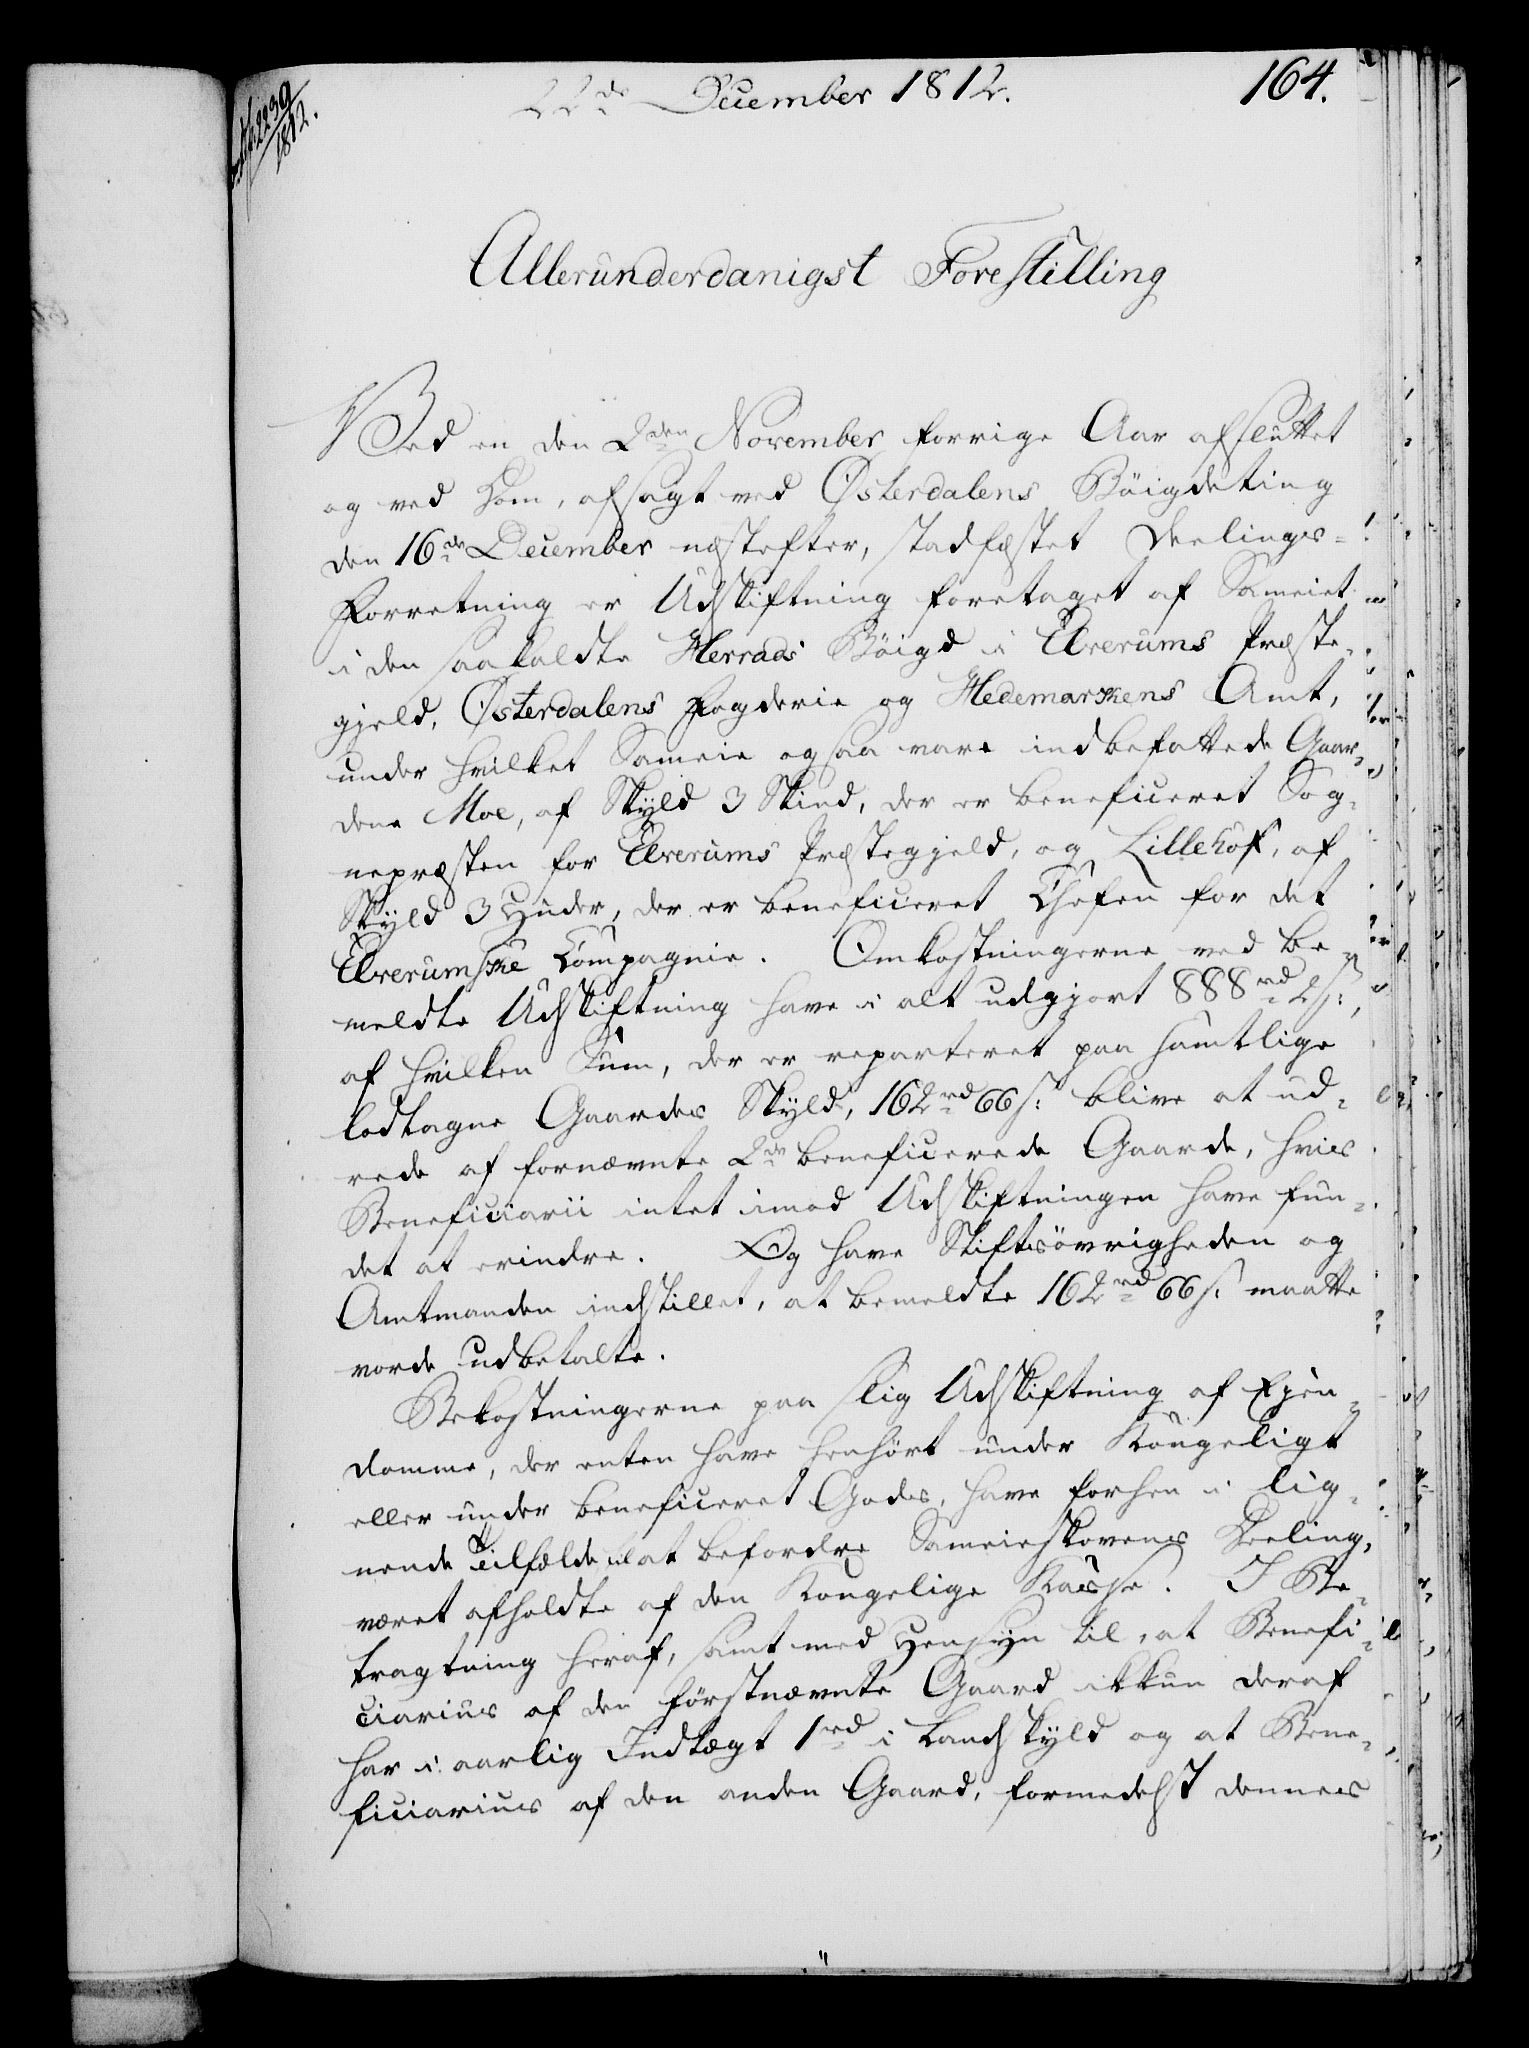 2239/1812.
22de December 1812.
164.
Allerunderdanigst Forestilling
Ved en den 2den November forrige Aar afsluttet
og ved Dom, afsagt ved Østerdalens Böigdeting
den 16de December næstefter, stadfæstet Deelings-
Forretning er Udskiftning foretaget af Sameiet
i den saakaldte Herrads Böigd i Elverums Præste-
gjeld, Østerdalens Fogderie og Hedemarkens Amt,
under hvilket Sameie ogsaa vare indbefattede Gaar-
dene Moe, af Skyld 3 Skind, der er beneficeret Sog-
nepræsten for Elverums Præstegjeld, og Lillehof, af
Skyld 3 Huder, der er beneficeret Chefen for det
Elverumske Compagnie. Omkostningerne ved be-
meldte Udskiftning have i alt udgjort 888rd 2s:,
af hvilken Sum, der er reparteret paa samtlige
lodtagne Gaardes Skyld, 162rd 66s: blive at ud-
rede af fornævnte 2de beneficerede Gaarde, hvis
Beneficiarii intet imod Udskiftningen have fun-
det at erindre. Og have Stiftsövrigheden og
Amtmanden indstillet, at bemeldte 162rd 66s: maatte
vorde udbetalte.
Bekostningerne paa slig Udskiftning af Ejen-
domme, der enten have henhört under Kongeligt
eller under beneficeret Gods, have forhen i lig-
nende Tilfælde til at befordre Sameieskovens Deeling,
været afholdte af den Kongelige Kasse. I Be-
tragtning heraf, samt med Hensyn til, at Benefi-
ciarius af den förstnævnte Gaard ikkun deraf
har i aarlig Indtægt 1rd i Landskyld og at Bene-
ficiarius af den anden Gaard, formedelst dennes